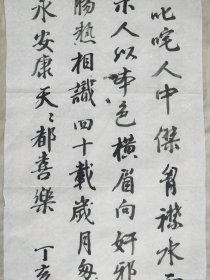 叱咤人中傑胷襟水
示人以本色橫眉向奸邪
腸熱相識四十載歲月匆
永安康天〻都喜樂 丁亥